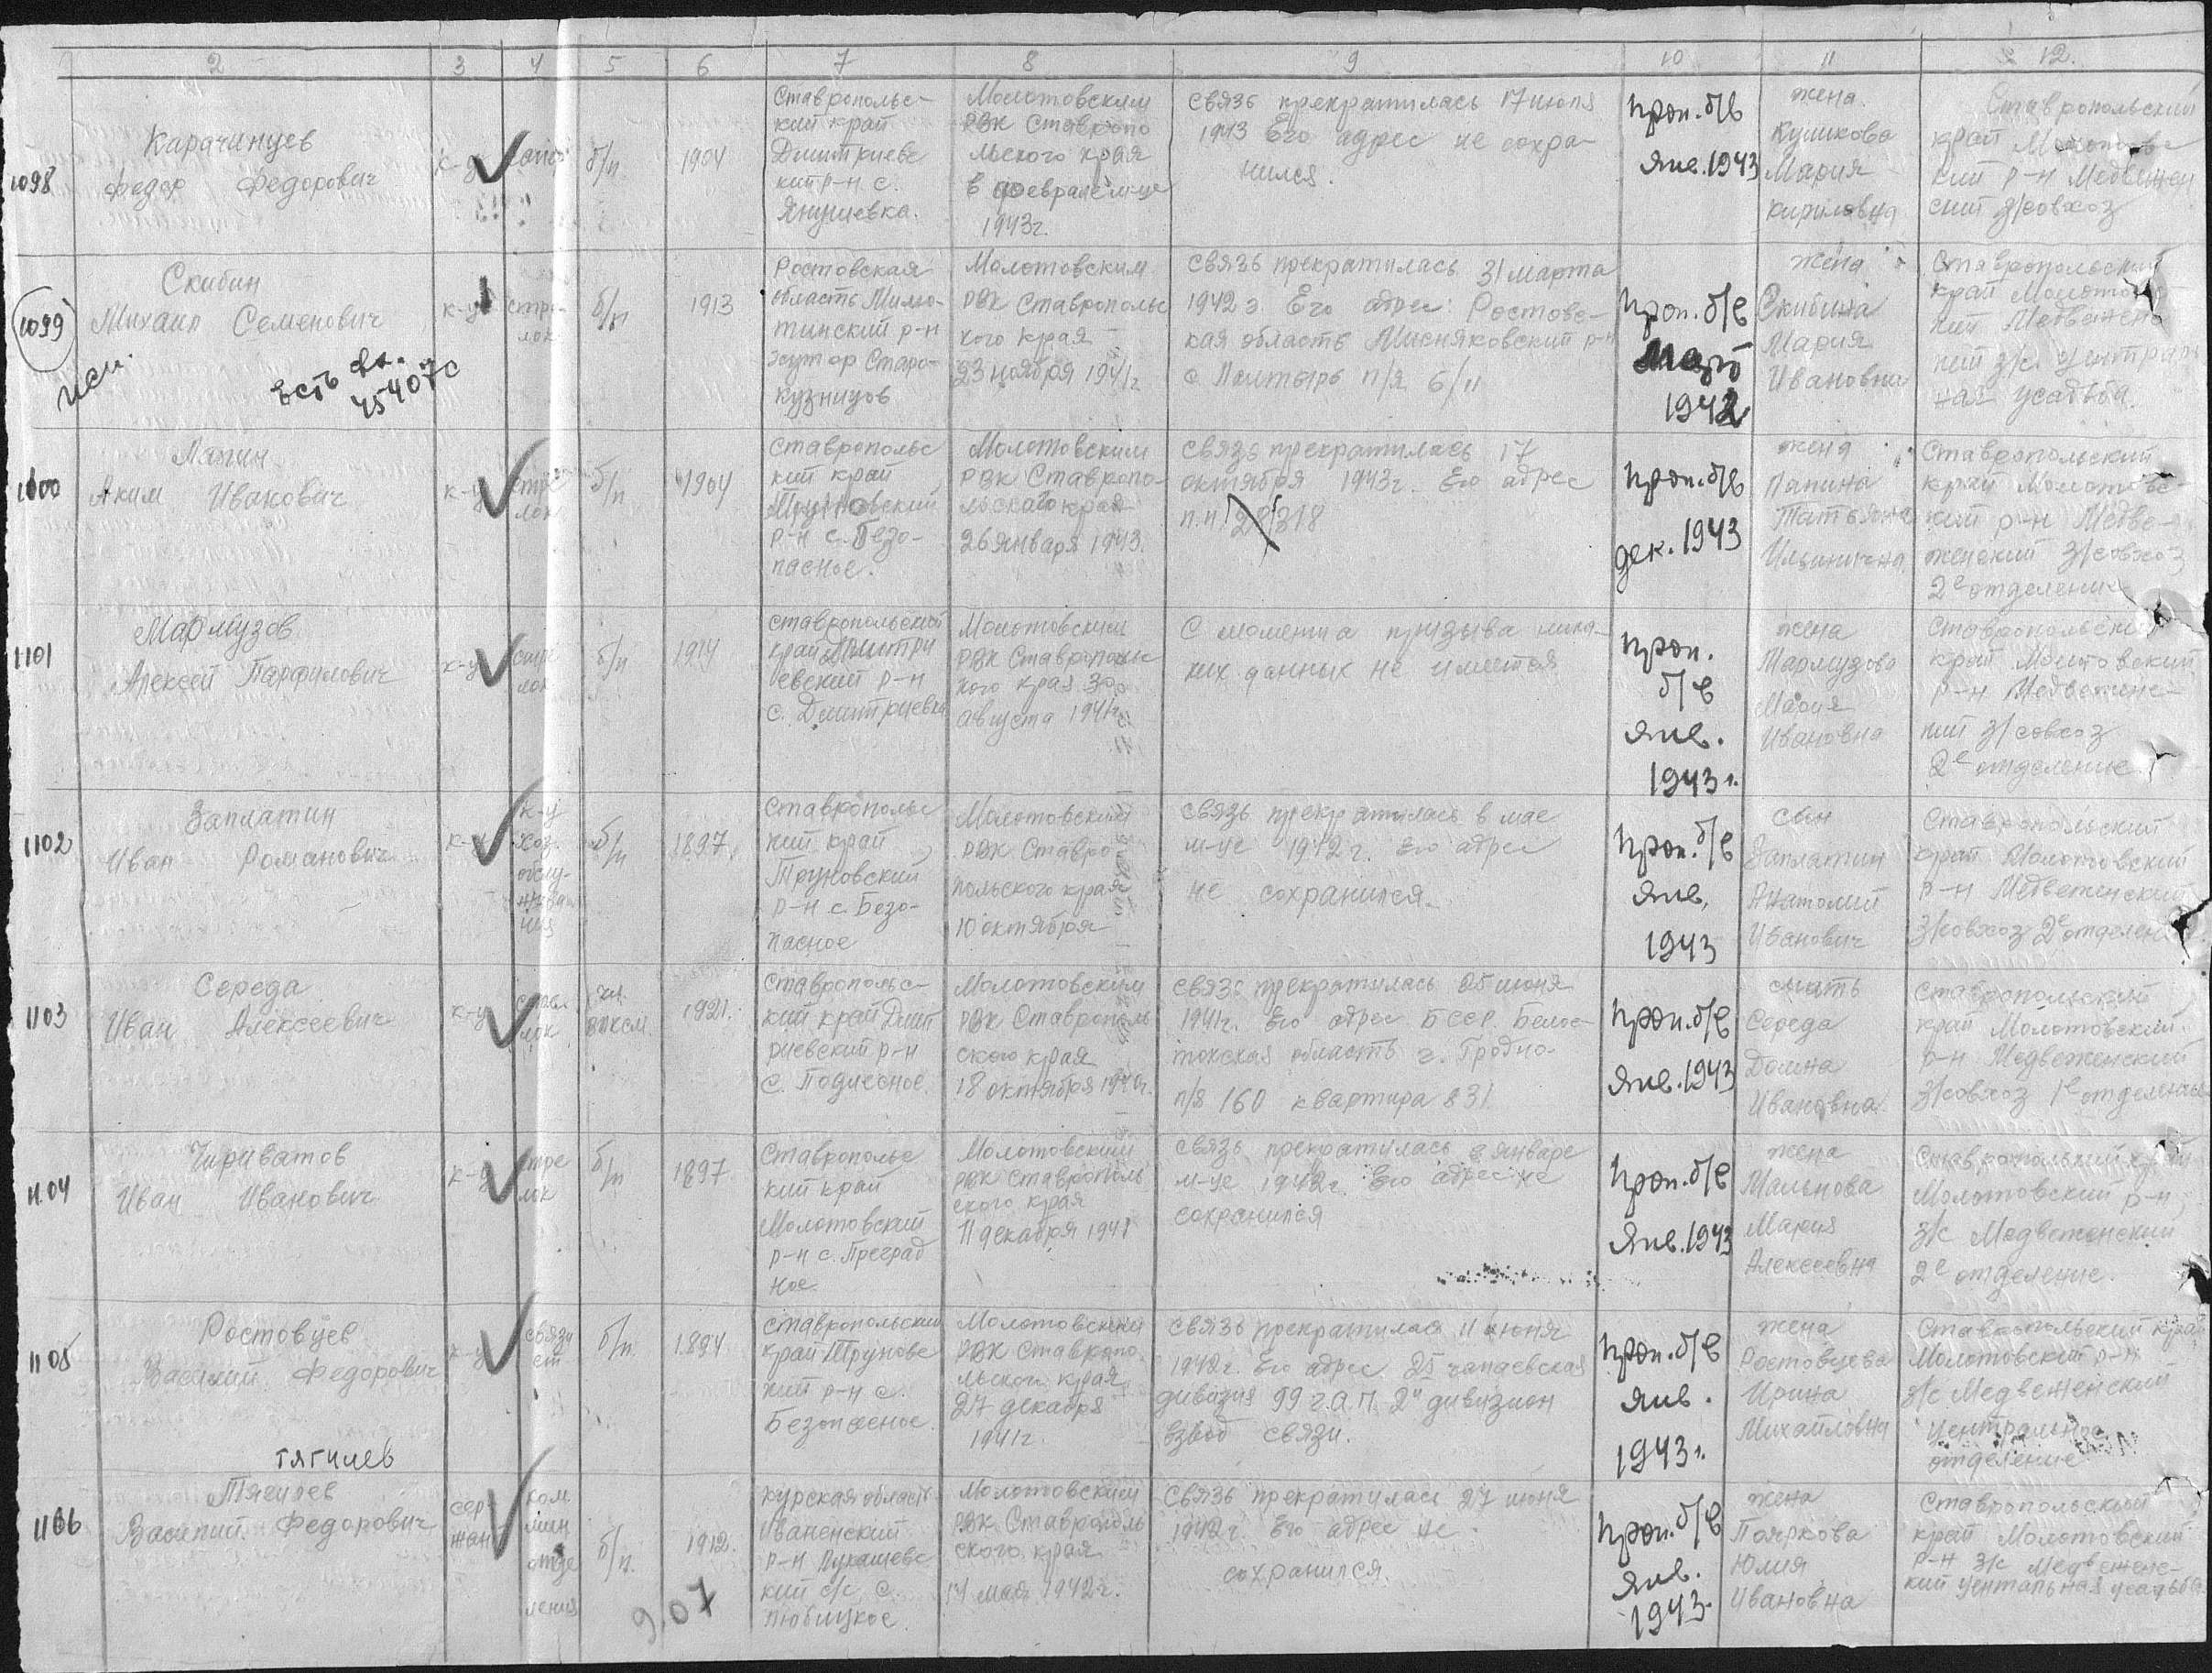 2 3 4 5 6 7 8 9 10 11 12.
1098
Карачинцев
Федор Федорович
к-ц
б/п
1904
Ставрополь-
кий край
Дмитриевс
кий р-н с.
Молотовским
РВК Ставропо
льского края
в феврале м-це
1943г.
связь прекратилась 17 июля
1943 Его адрес не сохра-
нился.
проп. б/в
янв. 1943
жена
Куликова
Мария
Кириловна
Ставропольский
край Молотовс
кий р-н Медвежен
ский з/совхоз
1099
Скибин
Михаил Семенович
есть
45407с
к-ц
стре-
лок
б/п
1913
Ростовская
область Милю-
тинский р-н
хутор Старо-
кузнецов
Молотовским
РВК Ставрополь
кого края
23 ноября 1941г
связь прекратилась 31 марта
1942 г. Его адрес: Ростовс-
кая область Мясняковский р-н
с. п/я 6/11
проп. б/в
март
1942
жена
Скибина
Мария
Ивановна
Ставропольский
край
кий Медвежен
кий з/с. централь
ная усадьба.
1100
Аким Иванович
к-ц
стре
лок
б/п
1904
Ставропольс
кий край
Труновский
р-н с. Безо-
пасное.
Молотовским
РВК Ставропо-
льского края
26 января 1943.
связь прекратилась 17
октября 1943г. Его адрес
п.п. 28318
проп. б/в
дек. 1943
жена
Татьяна
Ильинична
Ставропольский
край Молотовс-
кий р-н Медве-
женский з/совхоз
2е отделение
1101
Мармузов
Алексей Парфилович
к-ц
стре
лок
б/п
1914
Ставропольский
край Дмитри
евский р-н
с. Дмитриевка
Молотовским
РВК Ставропольс
кого края 30
августа 1941г.
С момента призыва ника-
ких данных не имеется
проп.
б/в
янв.
1943 г.
жена
Мармузова
Мария
Ивановна
Ставропольский
край Молотовский
р-н Медвеженс-
кий з/совхоз
2е отделение
1102
Заплатин
Иван Романович
к-ц
к-ц
хоз.
обслу-
жива
ния
б/п
1897
Ставропольс
кий край
Труновский
р-н с. Безо-
пасное
Молотовским
РВК Ставро
польского края
10 октября
связь прекратилась в мае
м-це 1942г. Его адрес
не сохранился
проп. б/в
янв,
1943
сын
Заплатин
Анатолий
Иванович
Ставропольский
край Молотовский
р-н Медвеженский
з/совхоз 2е отделен
1103
Середа
Иван Алексеевич
к-ц
стре
лок
чл.
влксм
1921.
Ставропольс-
кий край Дмит
риевский р-н
с. Подлесное.
Молотовским
РВК Ставрополь
ского края
18 октября
связь прекратилась 25 июня
1941г. Его адрес БССР. Белос-
токская область г. Гродно-
п/я 160 квартира 831
проп. б/в
янв. 1943
мать
Середа
Домна
Ивановна
Ставропольский
край Молотовский
р-н Медвеженский
з/совхоз 1е отделение
1104
Чириватов
Иван Иванович
к-ц
стре
лок
б/п
1897
Ставропольс
кий край
Молотовский
р-н с. Преград
ное
Молотовским
РВК Ставрополь
ского края
11 декабря 1941
связь прекратилась в январе
м-це 1942г. Его адрес не
сохранился
проп. б/в
янв. 1943
жена
Мария
Алексеевна
Ставропольский край
Молотовский р-н,
з/с Медвеженский
2е отделение.
1105
Ростовцев
Василий Федорович
к-ц
связи
ст
б/п
1894
Ставропольский
край Труновс
кий р-н с.
Безопасное.
Молотовским
РВК Ставропо
льского края
27 декабря
1941г.
связь прекратилась 11 июня
1942г. Его адрес 25 чапаевская
дивизия 99 г.а.п. 2й дивизион
взвод связи.
проп. б/в
янв.
1943г.
жена
Ростовцева
Ирина
Михайловна
Ставропольский края
Молотовский р-н
з/с Медвеженский
Центральное
отделение
1106
Тягилев
Тягилев
Василий Федорович
сер-
жант
ком.
мин
отде
ления
б/п.
1912.
9.07
Курская область
р-н
кий с/с, с.
Любицкое.
Молотовским
РВК Ставрополь
ского края
14 мая 1942г.
Связь прекратилась 27 июня
1942г. Его адрес не
сохранился.
проп. б/в
янв.
1943.
жена
Пояркова
Юлия
Ивановна
Ставропольский
край Молотовский
р-н з/с Медвеженс-
кий центальная усадьба